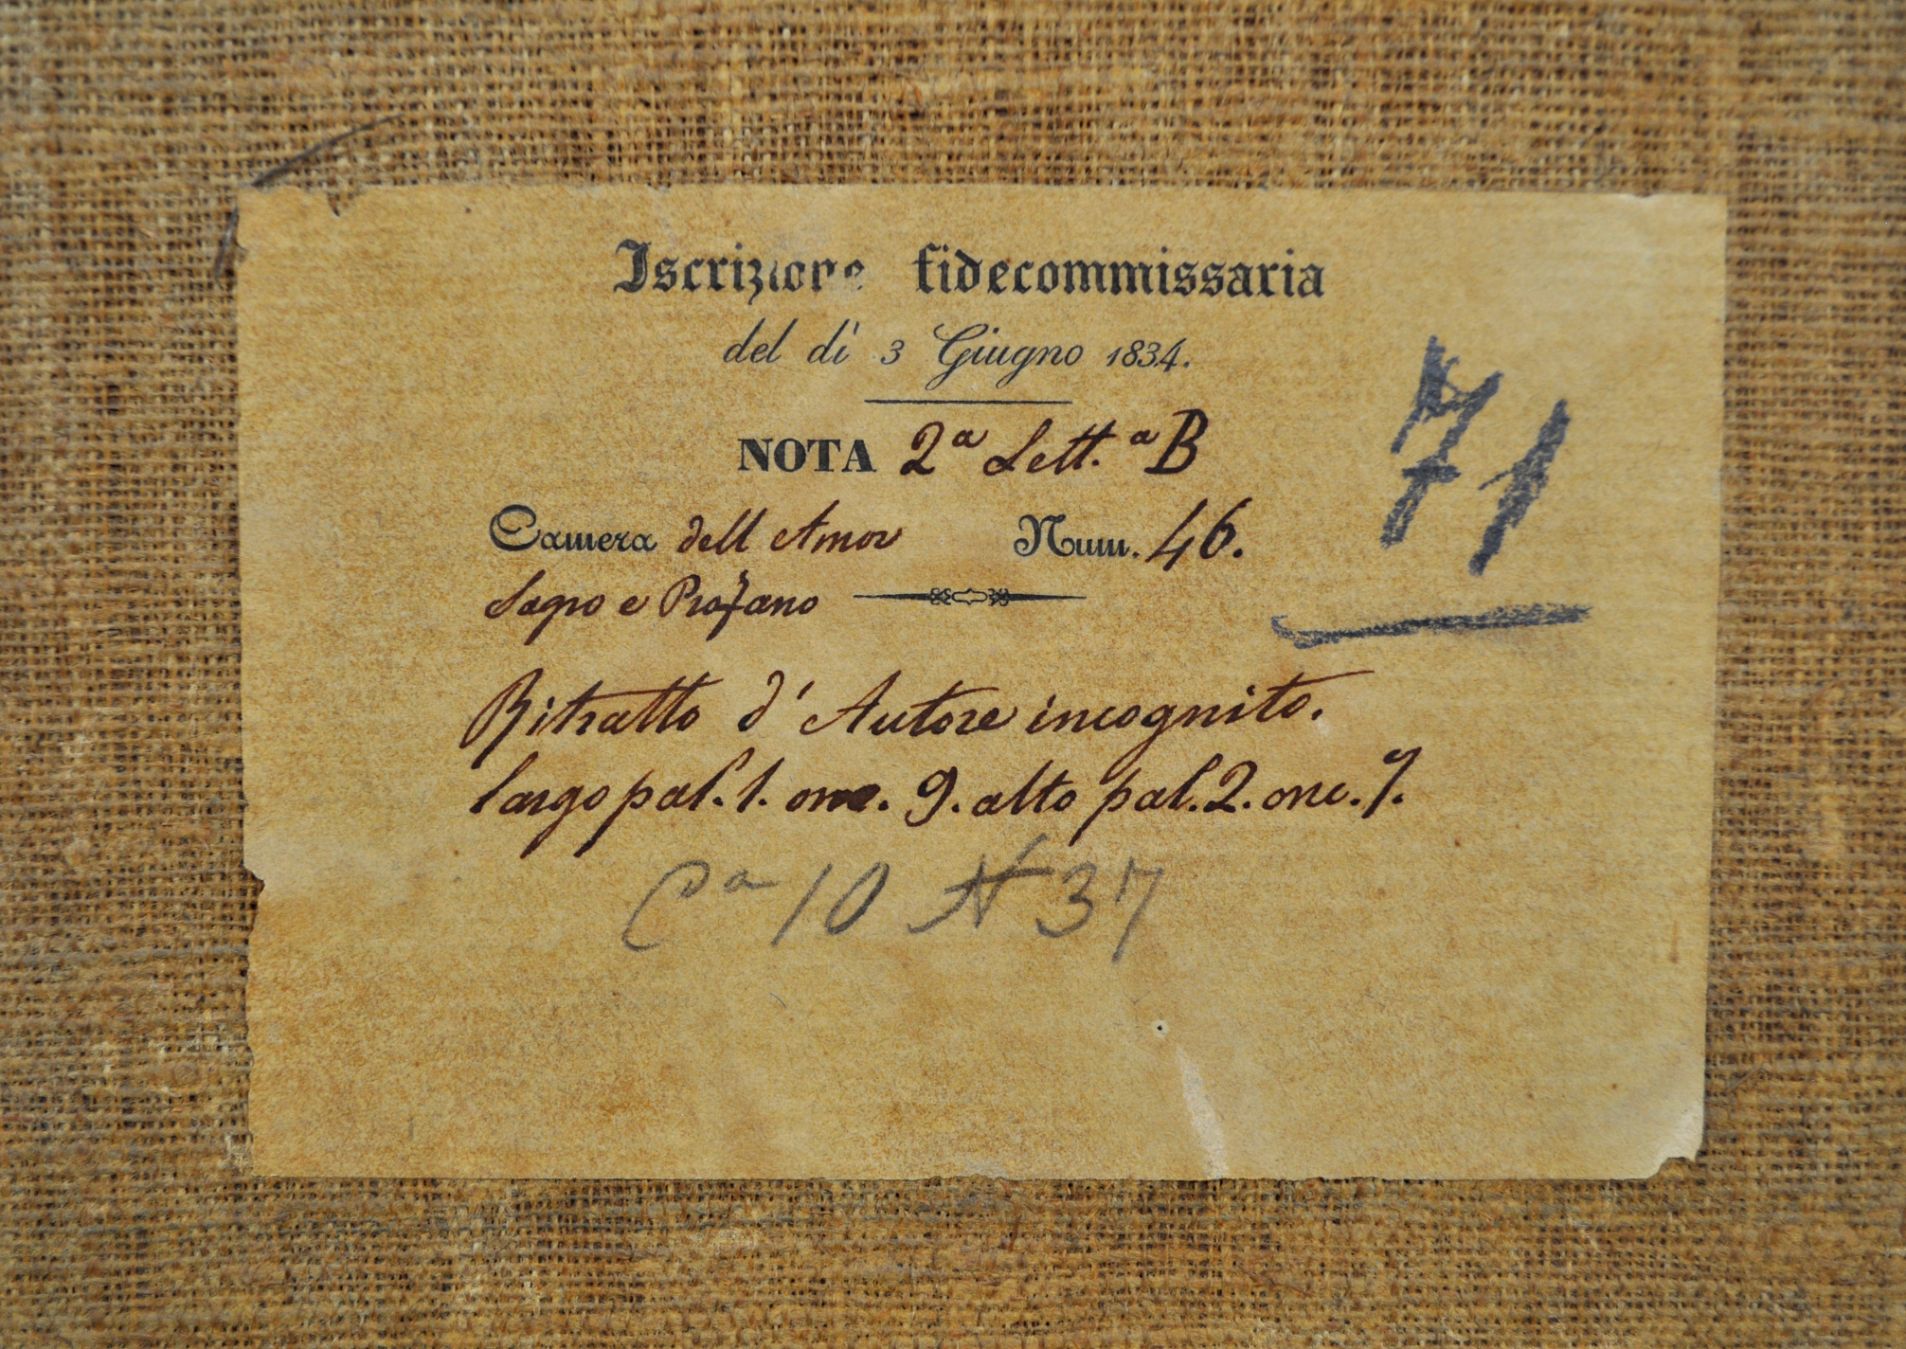 Iscrizione fidecommissaria
del dì 3 Giugno 1834.
NOTA 2ª Lett.ª B
Camera dell Amor Num. 46.
Sagro e Profano
71
Ritratto d' Autore incognito.
largo pal. 1. onc. 9. alto pal. 2. onc. 7.
Cª 10 N 37